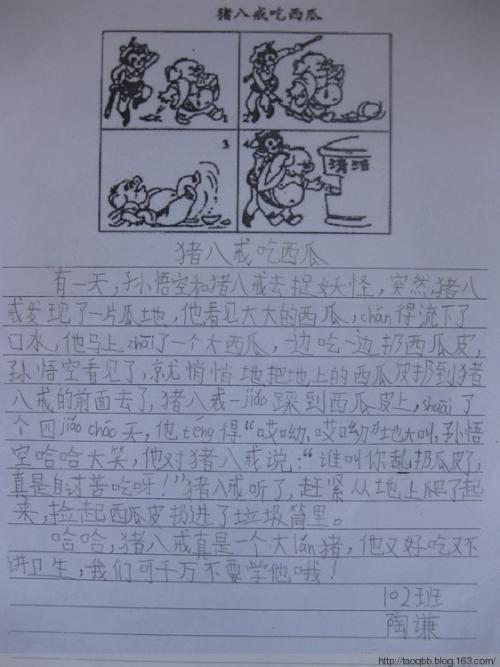 猪八戒吃西瓜
1
2
3
4
清洁
猪八戒吃西瓜
有一天,孙悟空和猪八戒去捉妖怪,突然猪八
戒发现了一片瓜地,他看见大大的西瓜,chán得流下了
口水,他马上zhāi了一个大西瓜,边吃边扔西瓜皮,
孙悟空看见了,就悄悄地把地上的西瓜皮扔到猪
八戒的前面去了,猪八戒一jiǎo踩到西瓜皮上,shuāi了
个四jiǎo cháo天,他téng得“哎呦,哎呦”地大叫,孙悟
空哈哈大笑,他对猪八戒说:“谁叫你乱扔瓜皮了,
真是自讨苦吃呀!”猪八戒听了,赶紧从地上爬了起
来,捡起西瓜皮扔进了垃圾筒里。
哈哈,猪八戒真是一个大lǎn猪,他又好吃又不
讲卫生,我们可千万不要学他哦!
102班
陶谦
http://taoqbb.blog.163.com/